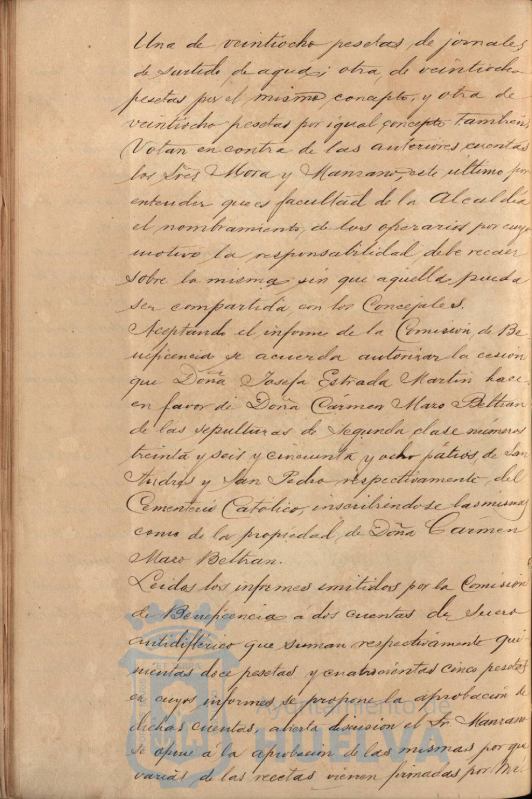 Una de veintiocho pesetas de jornales
de surtido de agua; otra de veintiocho
pesetas por el mismo concepto, y otra de
veintiocho pesetas por igual concepto tambien.
Votan en contra de las anteriores cuentas
los Sres Mora y Manzano, este ultimo por
entender que es facultad de la Alcaldia
el nombramiento de los operarios por cuyo
motivo la responsabilidad debe recaer
sobre la misma sin que aquella pueda
ser compartida con los Concejales.
Aceptando el informe de la Comision de Be
neficencia se acuerda autorizar la cesion
que Doña Josefa Estrada Martin hace
en favor de Doña Cármen Maro Beltran
de las sepulturas de segunda clase números
treinta y seis y cincuenta y ocho patios de San
Andres y San Pedro respectivamente del
Cementerio Catolico, inscribiendose las mismas
como de la propiedad de Doña Carmen
Maro Beltran.
Leidos los informes emitidos por la Comision
de Beneficencia a dos cuentas de suero
antidiftérico que suman respectivamente qui
nientas doce pesetas y cuatrocientas cinco pesetas
en cuyos informes se propone la aprobacion de
dichas cuentas, abierta discusion el Sr. Manzano
se opone á la aprobacion de las mismas por que
varias de las recetas vienen firmadas por
Ayuntamiento de
HUELVA